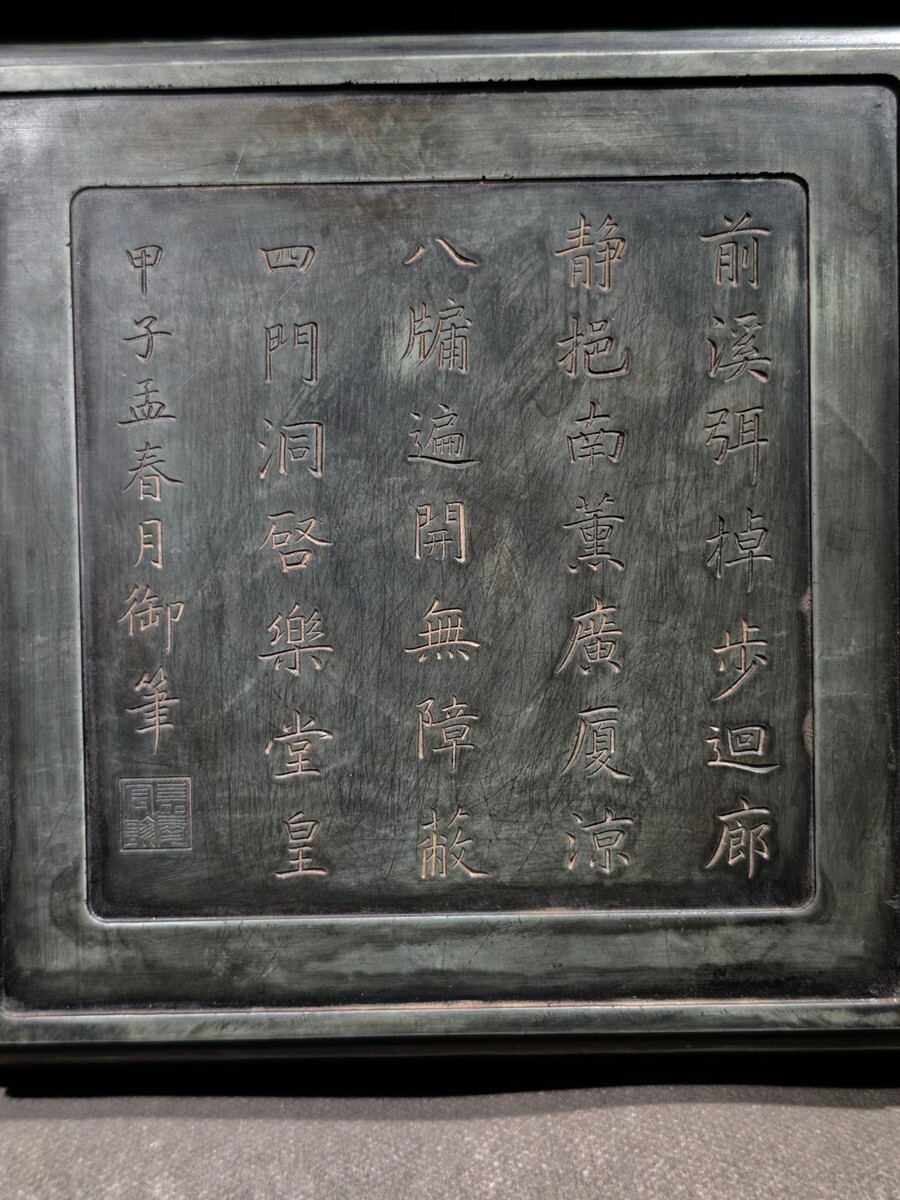 前溪弭棹步迴廊
静挹南薰廣厦涼
八牗遍開無障蔽
四門洞啓樂堂皇
甲子孟春月御筆
嘉慶宸翰